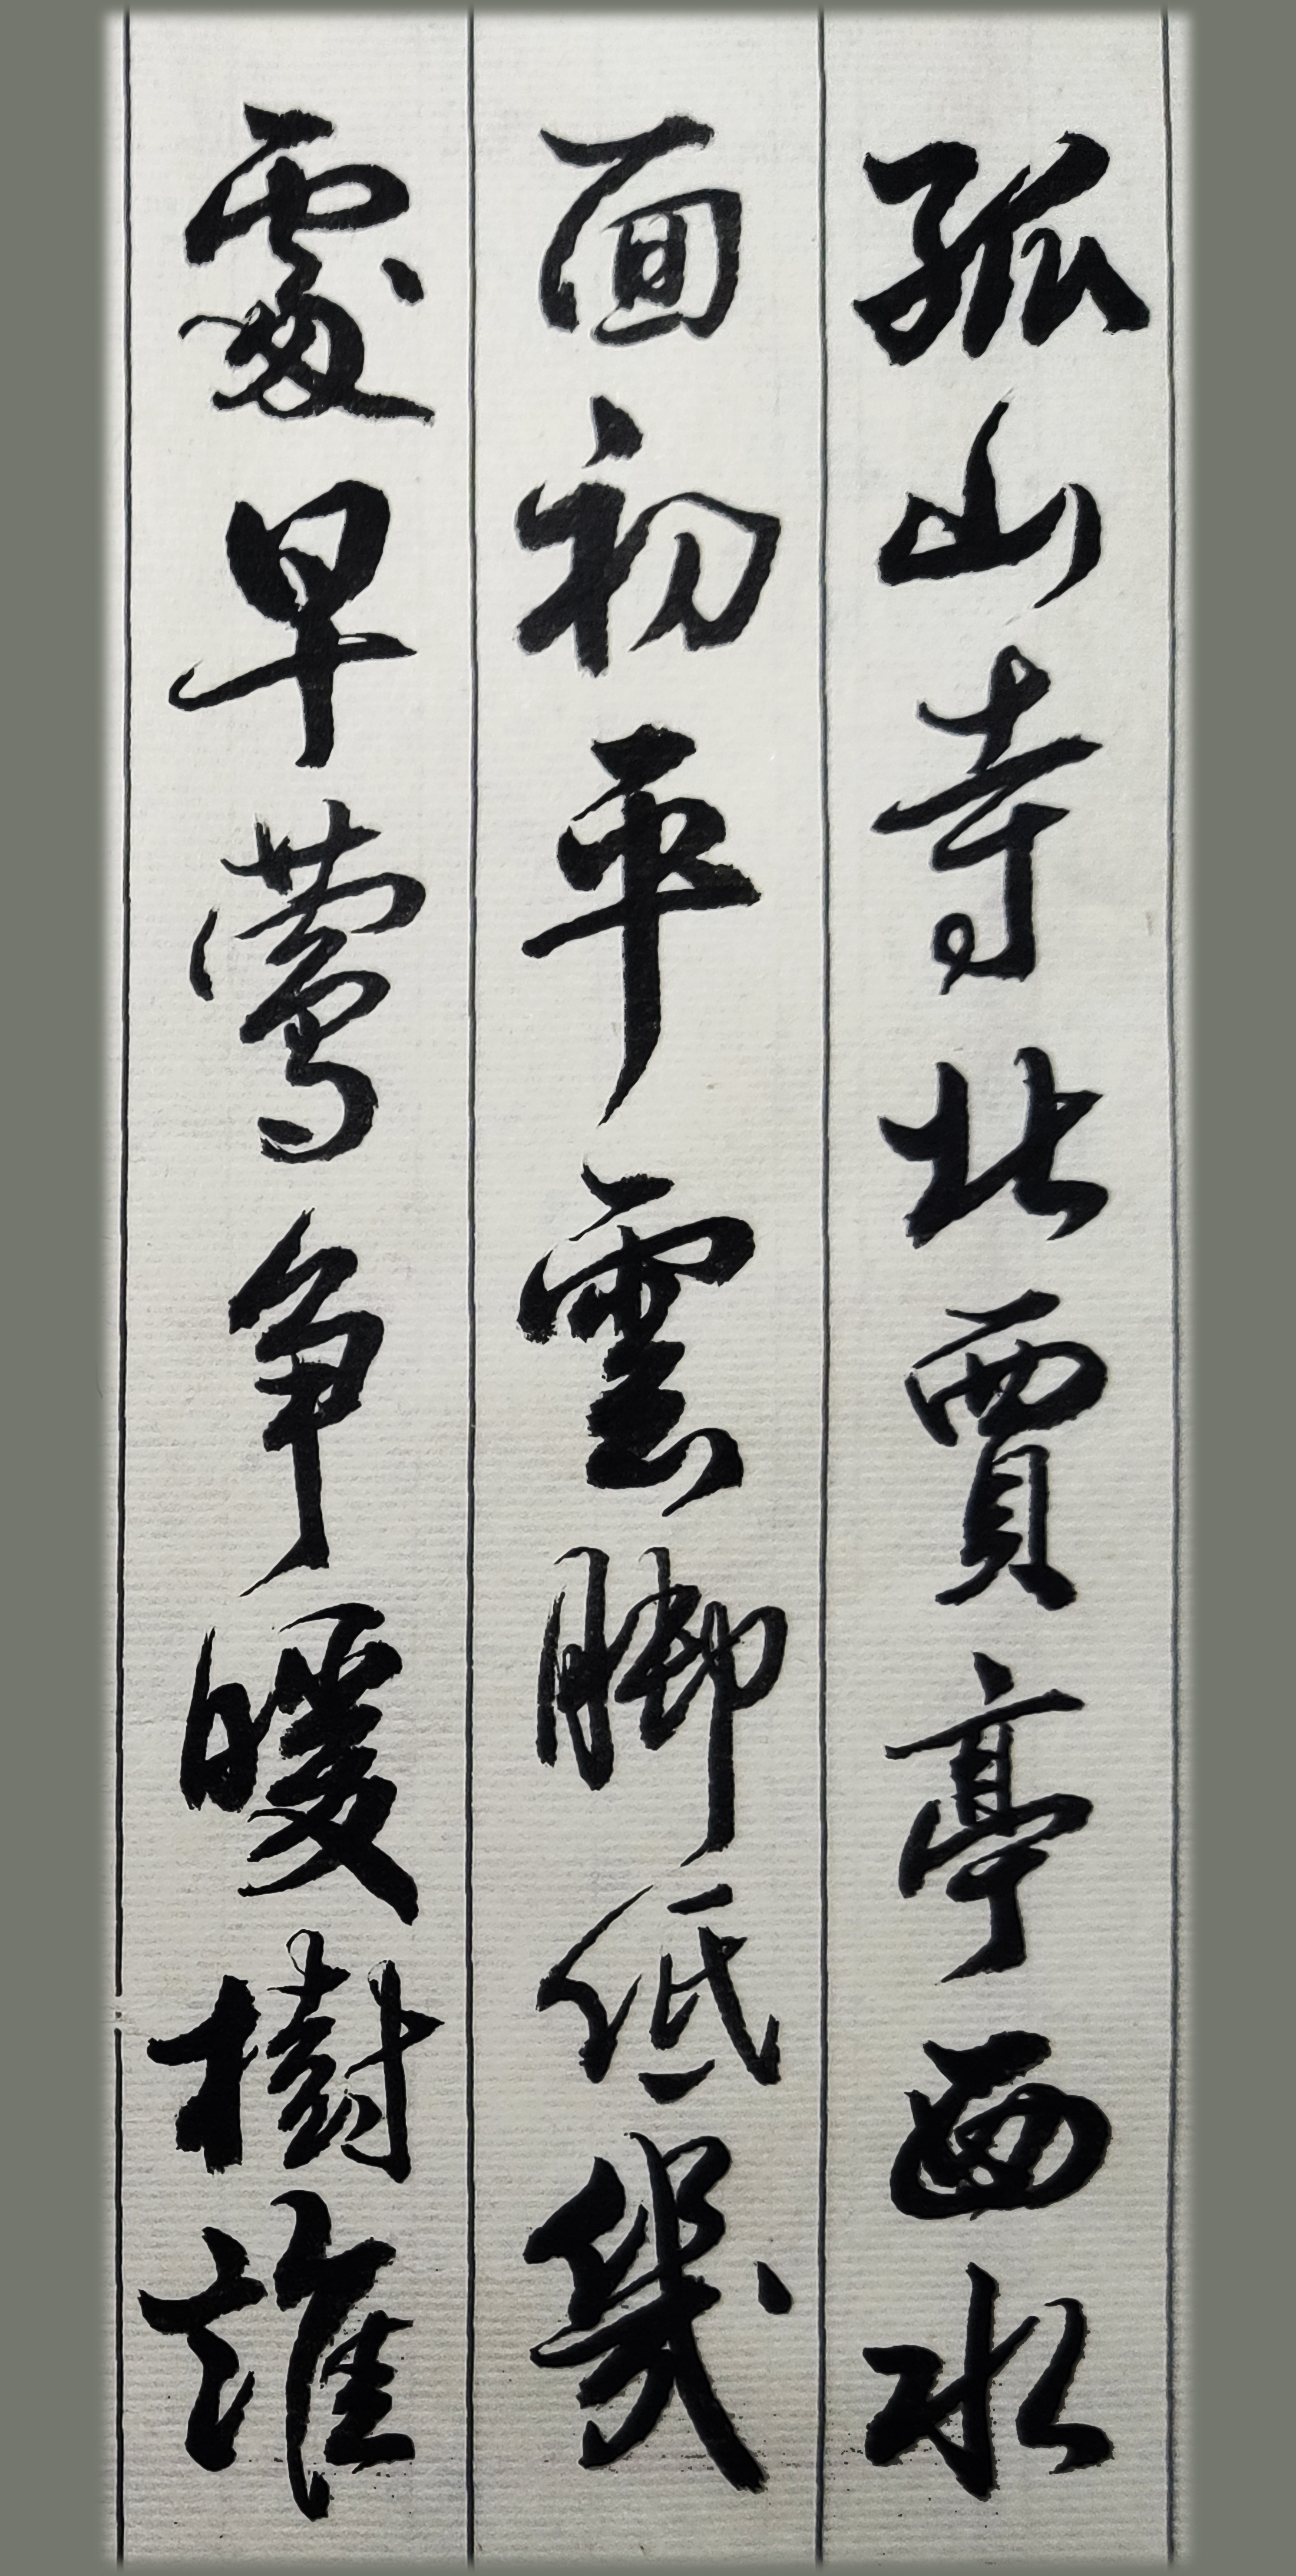 孤山寺北賈亭西水
面初平雲腳低幾
處早鶯爭暖樹誰